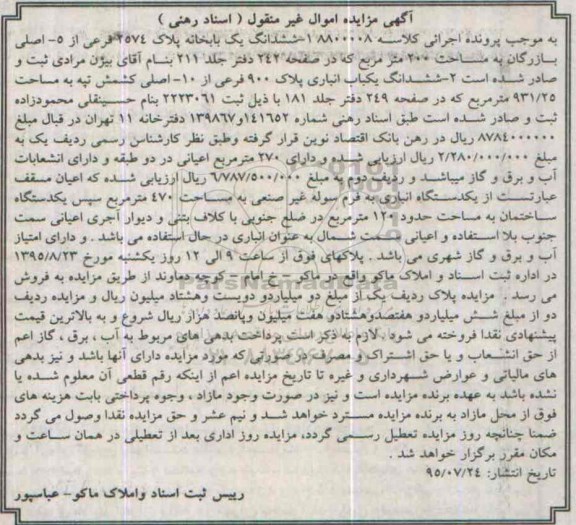 آگهی مزایده اموال غیر منقول ( اسناد رهنی )
به موجب پرونده اجرائی کلاسه ۸۸۰۰۰۰۸ ۱-ششدانگ یک بابخانه پلاک ۳۵۷۴ فرعی از ۵- اصلی
بازرگان به مساحت ۲۰۰ متر مربع که در صفحه ۲۴۲ دفتر جلد ۲۱۱ بنام آقای بیژن مرادی ثبت و
صادر شده است ۲-ششدانگ یکباب انباری پلاک ۹۰۰ فرعی از ۱۰- اصلی کشمش تپه به مساحت
۹۳۱/۲۵ مترمربع که در صفحه ۲۴۹ دفتر جلد ۱۸۱ با ذیل ثبت ۲۲۲۳۰۶۱ بنام حسینقلی محمودزاده
ثبت و صادر شده است طبق اسناد رهنی شماره ۱۴۱۶۵۲و۱۳۹۸۶۷ دفترخانه ۱۱ تهران در قبال مبلغ
۸۷۸۴۰۰۰۰۰۰ ریال در رهن بانک اقتصاد نوین قرار گرفته وطبق نظر کارشناس رسمی ردیف یک به
مبلغ ۲/۲۸۰/۰۰۰/۰۰۰ ریال ارزیابی شده و دارای ۲۷۰ مترمربع اعیانی در دو طبقه و دارای انشعابات
آب و برق و گاز میباشد و ردیف دو به مبلغ ۶/۷۸۷/۵۰۰/۰۰۰ ریال ارزیابی شده که اعیان مسقف
عبارتست از یکدستگاه انباری به فرم سوله غیر صنعی به مساحت ۴۷۰ مترمربع سپس یکدستگاه
ساختمان به مساحت حدود ۱۲۰ مترمربع در ضلع جنوبی با کلاف بتنی و دیوار آجری اعیانی سمت
جنوب بلا استفاده و اعیانی سمت شمال به عنوان انباری در حال استفاده می باشد . و دارای امتیاز
آب و برق و گاز شهری می باشد . پلاکهای فوق از ساعت ۹ الی ۱۲ روز یکشنبه مورخ ۱۳۹۵/۸/۲۳
در اداره ثبت اسناد و املاک ماکو واقع در ماکو – خ امام – کوچه دماوند از طریق مزایده به فروش
می رسد . مزایده پلاک ردیف یک از مبلغ دو میلیاردو دویست وهشتاد میلیون ریال و مزایده ردیف
دو از مبلغ شش میلیاردو هفتصدوهشتادو هفت میلیون وپانصد هزار ریال شروع و به بالاترین قیمت
پیشنهادی نقدا فروخته می شود . لازم به ذکر است پرداخت بدهی های مربوط به آب ، برق ، گاز اعم
از حق انشعاب و یا حق اشتراک و مصرف در صورتی که مورد مزایده دارای آنها باشد و نیز بدهی
های مالیاتی و عوارض شهرداری و غیره تا تاریخ مزایده اعم از اینکه رقم قطعی آن معلوم شده یا
نشده باشد به عهده برنده مزایده است و نیز در صورت وجود مازاد ، وجوه پرداختی بابت هزینه های
فوق از محل مازاد به برنده مزایده مسترد خواهد شد و نیم عشر و حق مزایده نقدا وصول می گردد
ضمنا چنانچه روز مزایده تعطیل رسمی گردد، مزایده روز اداری بعد از تعطیلی در همان ساعت و
مکان مقرر برگزار خواهد شد .
تاریخ انتشار: ۹۵/۰۷/۲۴
رییس ثبت اسناد واملاک ماکو– عباسپور